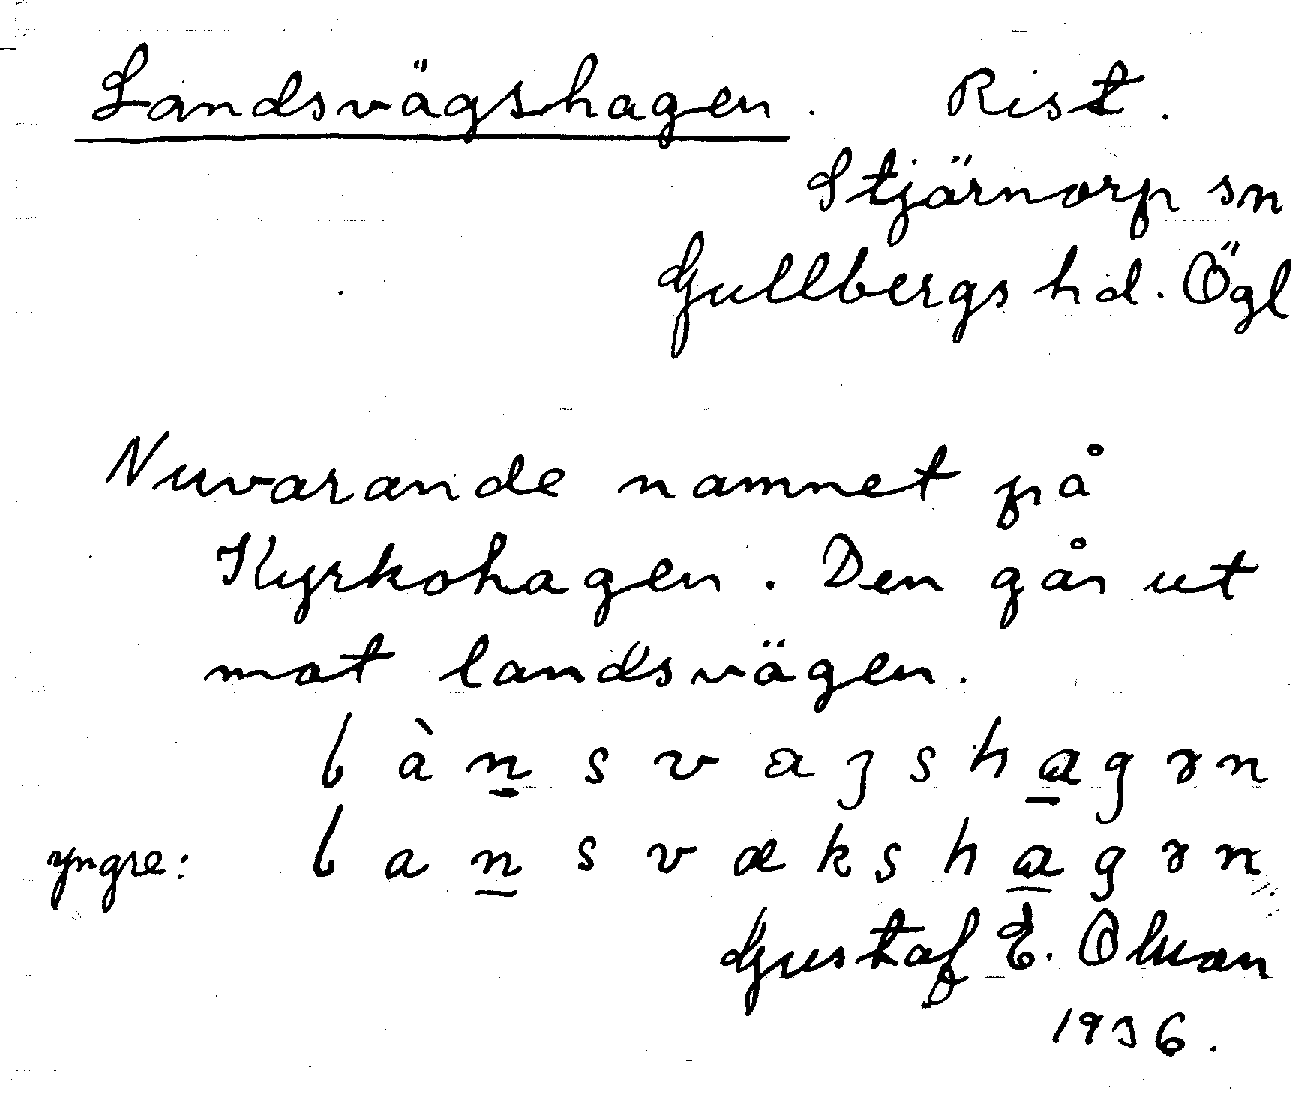 Landsvägshagen. Rist.
Stjärnorp sn
Gullbergs hd. Ögl
Nuvarande namnet på
Kyrkohagen. Den går ut
mot landsvägen.
làn̲svaʒsha̲gɘn
yngre: lan̲svæksha̲gɘn
Gustaf E. Olsson
1936.